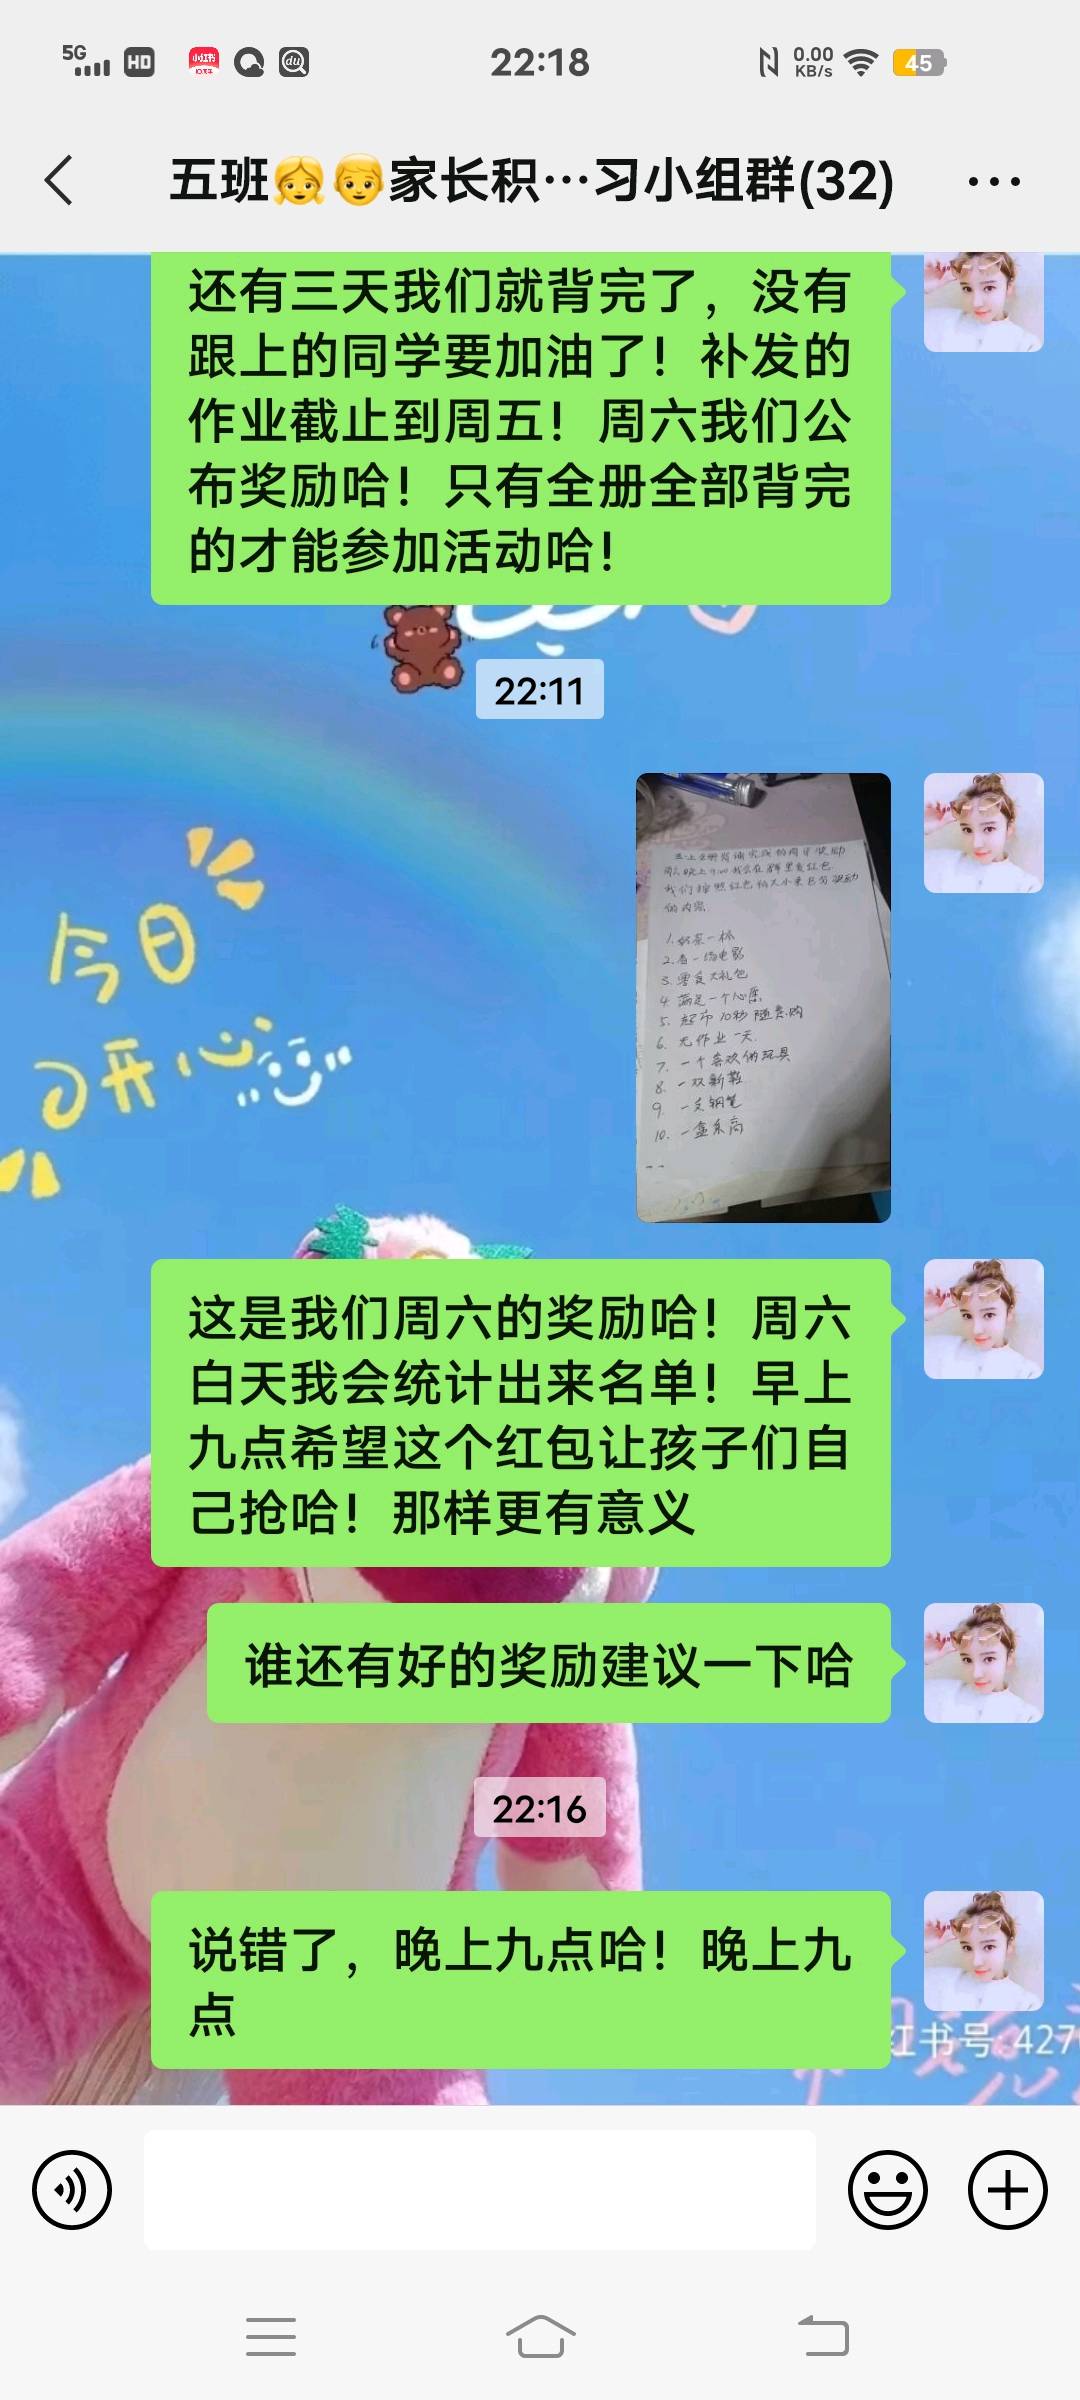 5G
HD
小红书
du
22:18
0.00
KB/s
45
五班👧👦家长积…习小组群(32)
还有三天我们就背完了，没有
跟上的同学要加油了！补发的
作业截止到周五！周六我们公
布奖励哈！只有全册全部背完
的才能参加活动哈！
22:11
今日
开心
我们按照红包的大小来
的内容
1. 奶茶一杯
2. 看一场电影
3. 零食大礼包
4. 满足一个心愿
5. 超市10秒随意购
6. 无作业一天
7. 一个喜欢的玩具
8. 一双新鞋
9. 一支钢笔
10. 一盒乐高
这是我们周六的奖励哈！周六
白天我会统计出来名单！早上
九点希望这个红包让孩子们自
己抢哈！那样更有意义
谁还有好的奖励建议一下哈
22:16
说错了，晚上九点哈！晚上九
点
红书号:427